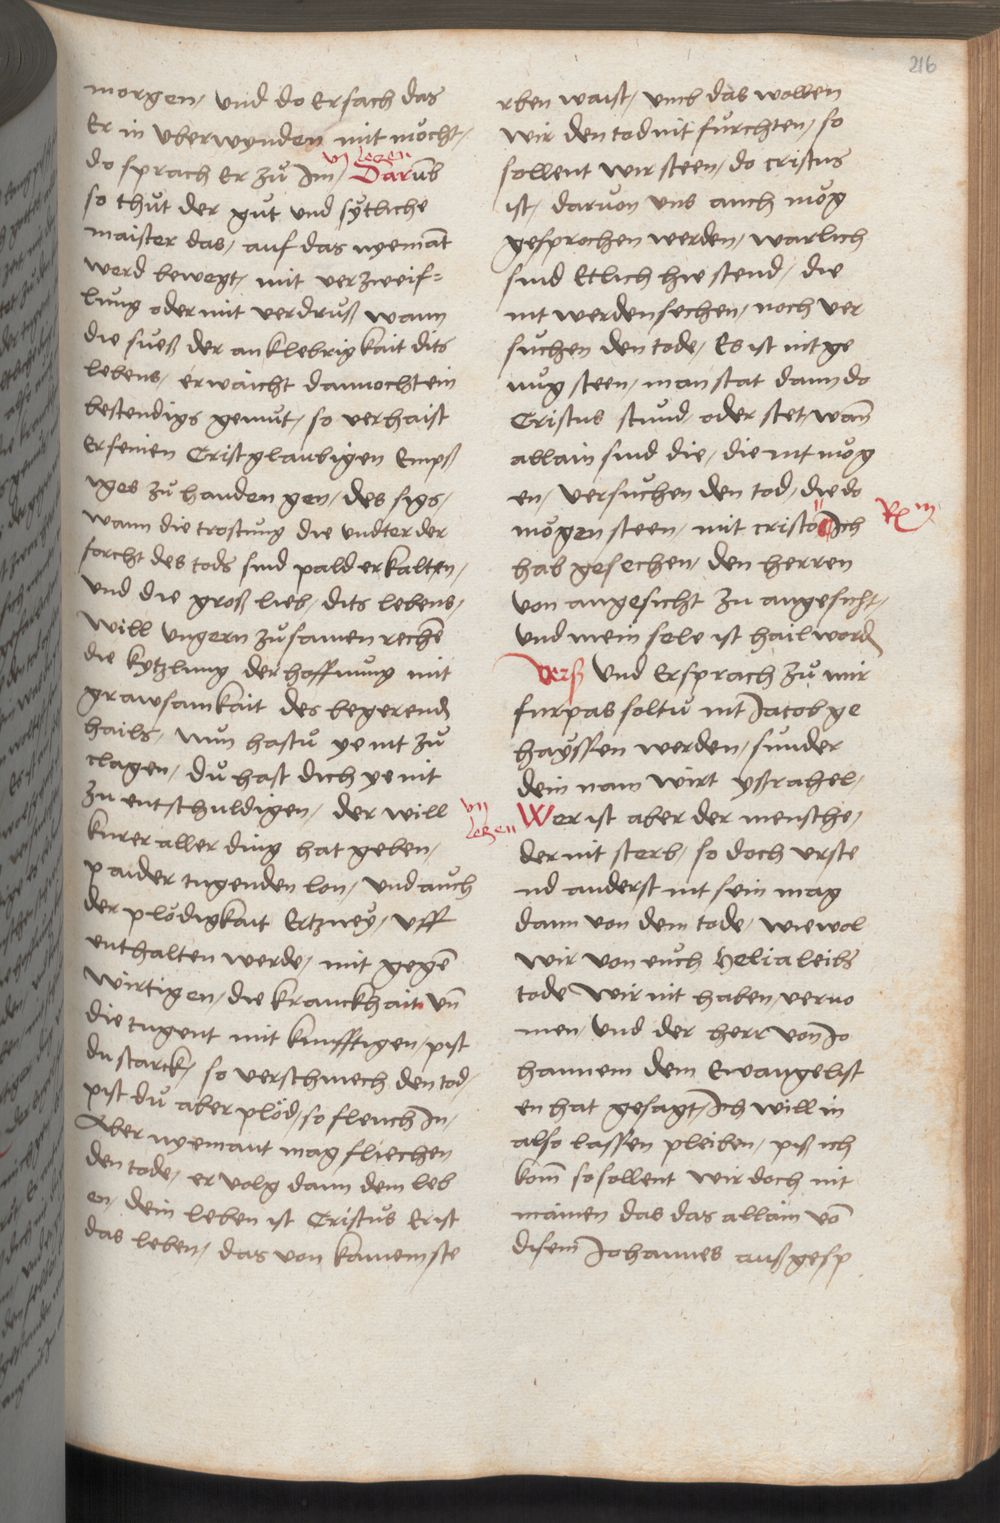 216
morgen / vnd do Ersach das
Er in vberwynden nit möcht /
vj legen
do sprach Er zů Jm / Darūb
so thůt der gůt vnd sÿtliche
maister das / auf das nyemāt
werd bewegt / mit verzweif=
lung oder mit verdruß wann
die sueß der anklebrigkait dits
lebens / erwaicht dannocht ein
bestendigs gemůt / so verhaist
Er seinen Cristglaubigen
yges zů handen gen / des sigs /
wann die trostung die vndter der
forcht des tods sind pald erkalten /
vnd die groß lieb / dits lebens /
will vngern zůsamen rechē
die kytzlung der hoffnung mit
grawsamkait des begerendē
hails / Nun hastů ye nit zů
clagen / dů hast dich ye nit
zu entschuldigen / der will
kurer aller ding hat geben /
paider tugenden lon / vnd auch
der plödigkait Ertzney / vff
enthalten werde / mit gegē
wirtigen / die kranckhait vn̄
die tugent mit kunfftigen / pist
du starck / so verschmech den tod /
pist dů aber plöd / so fleuch In /
Aber nyemant mag fliechen
den tode / er volg dann dem leb
en / dein leben ist Cristus Er ist
das leben / das von kainem ste
rben waist / vmb das wollen
wir den tod nit furchten / so
sollent wir steen / do cristus
ist / daruon vns auch mög
gesprochen werden / warlich
sind Etlich hie stend / die
nit werden sechen / noch ver
suchen den tode / Es ist nit ge
nug steen / man stat dann do
Cristus stund oder stet / wan̄
allain sind die / die nit mög
en / versuchen den tod / die do
mögen steen / mit cristo Ich
hab gesechen / den herren
von angesicht zu angesicht /
vnd mein sele ist hail wordē
Verß Vnd Er sprach zů mir
furpas soltů nit Jacob ge
hayssen werden / sunder
dein nam wirt ysrahel /
vij
lezen
Wer ist aber der mensche /
der nit sterb / so doch vrste
nd anderst nit sein mag
dann von dem tode / wiewol
wir von euch helia leibs
tode wir nit haben verno
men / vnd der herr von Jo
hannem dem Ewangelist
en hat gesagt / Ich will in
also lassen pleiben / piß ich
kom̄ so sollent wir doch nit
mainen das das allain vō
disem Johannes außgesp